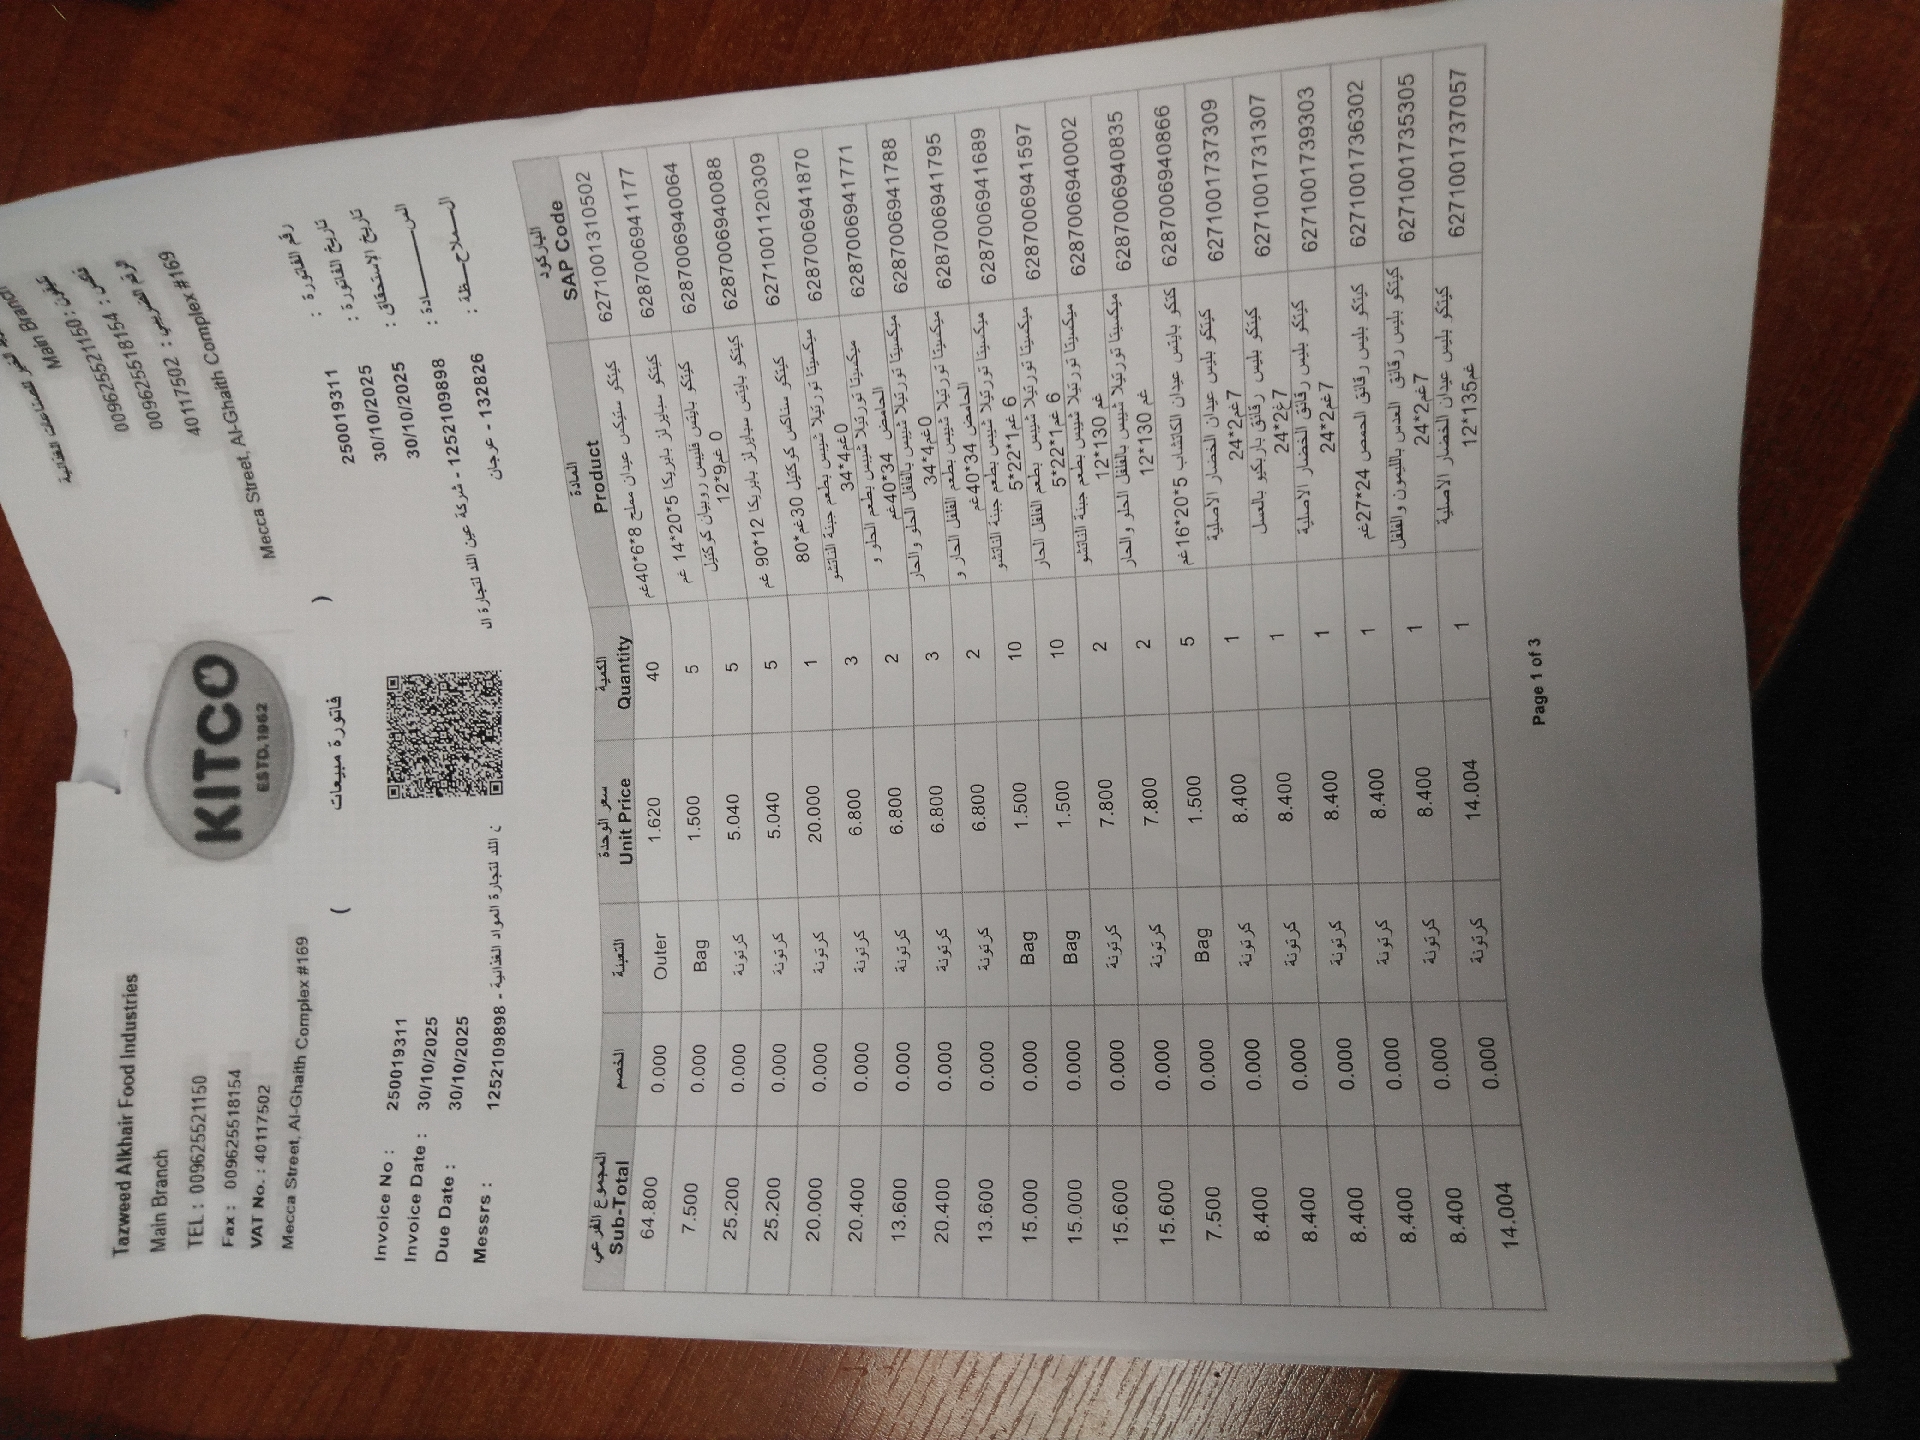 Tazweed Alkhair Food Industries
Main Branch
TEL : 0096255521150
Fax : 0096255518154
VAT No. : 40117502
Mecca Street, Al-Ghaith Complex #169
KITCO
ESTD. 1962
Main Branch
تلفون : 0096255521150
فكس : 0096255518154
الرقم الضريبي : 40117502
Mecca Street, Al-Ghaith Complex #169
( فاتورة مبيعات )
Invoice No : 250019311
Invoice Date : 30/10/2025
Due Date : 30/10/2025
Messrs : 1252109898 - ن اللد لتجارة المواد الغذائية
رقم الفاتورة : 250019311
تاريخ الفاتورة : 30/10/2025
تاريخ الإستحقاق : 30/10/2025
الســـــــادة : 1252109898 - شركة عين اللد لتجارة ال
الـــملاحـــظة : 132826 - عرجان
المجموع الفرعي الخصم التعبئة سعر الوحدة الكمية المادة الباركود
Sub-Total Unit Price Quantity Product SAP Code
64.800 0.000 Outer 1.620 40 كيتكو ستيكس عيدان مملح 8*6*40غم 6271001310502
7.500 0.000 Bag 1.500 5 كيتكو سبايرلز بابريكا 5*20*14 غم 6287006941177
25.200 0.000 كرتونة 5.040 5 كيتكو بايتس فليبس روبيان كوكتيل 6287006940064
12*9غم 0
25.200 0.000 كرتونة 5.040 5 كيتكو بايتس سبايرلز بابريكا 12*90 غم 6287006940088
20.000 0.000 كرتونة 20.000 1 كيتكو سناكس كوكتيل 30غم*80 6271001120309
20.400 0.000 كرتونة 6.800 3 ميكسيتا تورتيلا شيبس بطعم جبنة الناتشو 6287006941870
34*4غم0
13.600 0.000 كرتونة 6.800 2 ميكسيتا تورتيلا شيبس بطعم الحلو و 6287006941771
الحامض 34*40غم
20.400 0.000 كرتونة 6.800 3 ميكسيتا تورتيلا شيبس بالفلفل الحلو والحار 6287006941788
34*4غم0
13.600 0.000 كرتونة 6.800 2 ميكسيتا تورتيلا شيبس بطعم الفلفل الحار و 6287006941795
الحامض 34*40غم
15.000 0.000 Bag 1.500 10 ميكسيتا تورتيلا شيبس بطعم جبنة الناتشو 6287006941689
5*22*1غم 6
15.000 0.000 Bag 1.500 10 ميكسيتا تورتيلا شيبس بطعم الفلفل الحار 6287006941597
5*22*1غم 6
15.600 0.000 كرتونة 7.800 2 ميكسيتا تورتيلا شيبس بطعم جبنة الناتشو 6287006940002
12*130 غم
15.600 0.000 كرتونة 7.800 2 ميكسيتا تورتيلا شيبس بالفلفل الحلو والحار 6287006940835
12*130 غم
7.500 0.000 Bag 1.500 5 كتكو بايتس عيدان الكاتشاب 5*20*16غم 6287006940866
8.400 0.000 كرتونة 8.400 1 كيتكو بليس عيدان الخضار الاصلية 6271001737309
24*2غم7
8.400 0.000 كرتونة 8.400 1 كيتكو بليس رقائق باربكيو بالعسل 6271001731307
24*2غ7
8.400 0.000 كرتونة 8.400 1 كيتكو بليس رقائق الخضار الاصلية 6271001739303
24*2غم7
8.400 0.000 كرتونة 8.400 1 كيتكو بليس رقائق الحمص 24*27غم 6271001736302
8.400 0.000 كرتونة 8.400 1 كيتكو بليس رقائق العدس بالليمون والفلفل 6271001735305
24*2غم7
14.004 0.000 كرتونة 14.004 1 كيتكو بليس عيدان الخضار الاصلية 6271001737057
12*135غم
Page 1 of 3